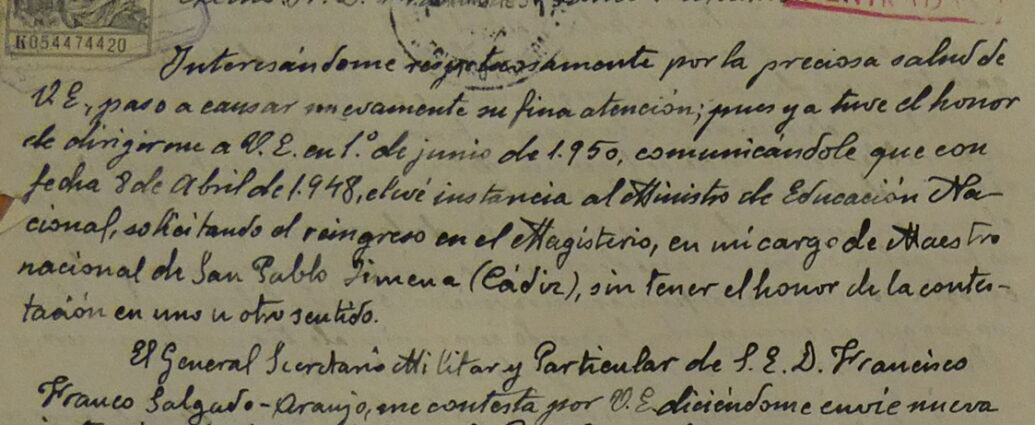 K054474420
ENTRADA
Interesándome respetuosamente por la preciosa salud de
V.E., paso a causar nuevamente su fina atención; pues ya tuve el honor
de dirigirme a V.E. en 1.º de junio de 1.950, comunicándole que con
fecha 8 de Abril de 1.948, elevé instancia al Ministro de Educación Na-
cional, solicitando el reingreso en el Magisterio, en mi cargo de Maestro
nacional de San Pablo Jimena (Cádiz), sin tener el honor de la contes-
tación en uno u otro sentido.
El General Secretario Militar y Particular de S.E.D. Francisco
Franco Salgado-Araujo, me contesta por V.E. diciéndome envíe nueva